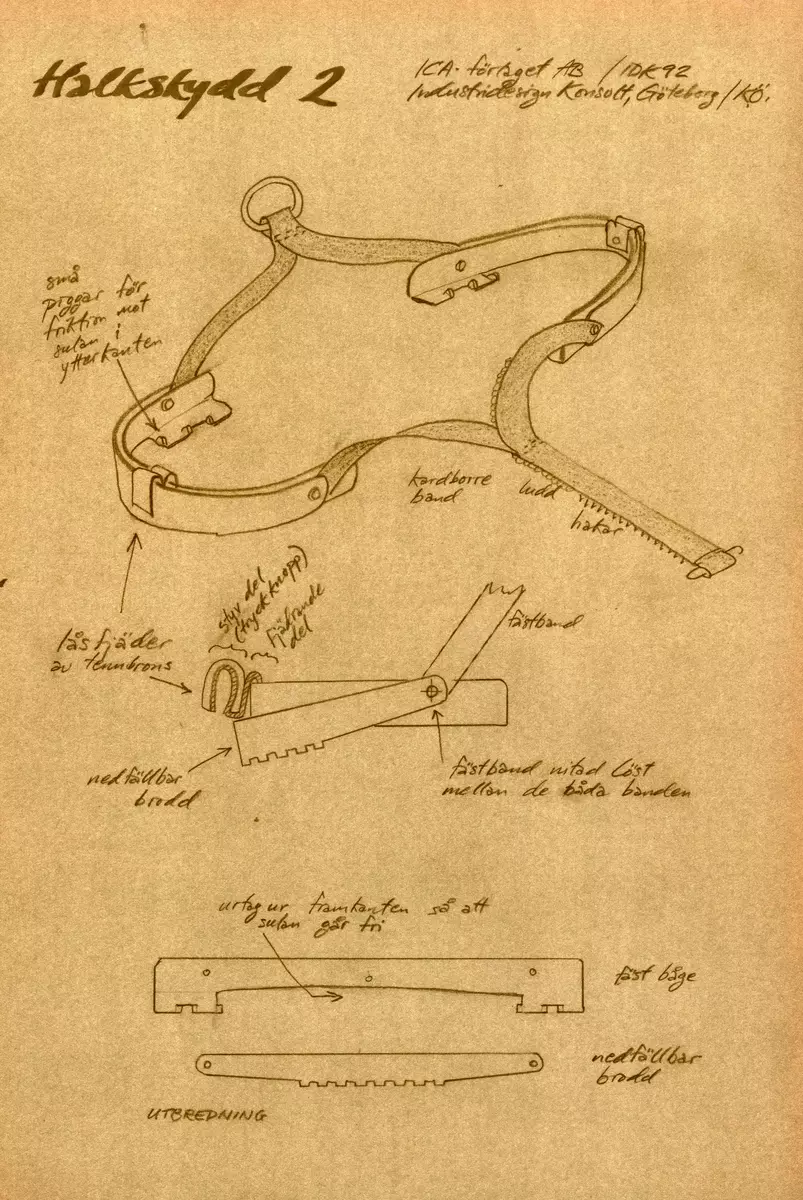 Halkskydd 2
ICA-förlaget AB / IDK92
Industridesign Konsult, Göteborg / KÖ.
små
piggar för
friktion mot
sulan i
ytterkanten
kardborre
band
ludd
hakar
styv del
(tryckknopp)
fjädrande
del
låsfjäder
av tennbrons
fästband
nedfällbar
brodd
fästband nitad löst
mellan de båda banden
urtag ur framkanten så att
sulan går fri
fäst båge
nedfällbar
brodd
UTBREDNING